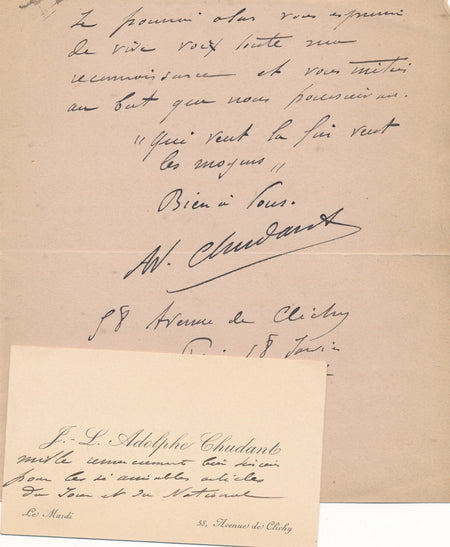 Je pourrai plus vous exprimer
de vive voix toute ma
reconnaissance et vous
au but que nous poursuivons.
"Qui veut la fin veut
les moyens"
Bien à Vous.
Ad. Chudant
58 Avenue de Clichy
18
J.-L. Adolphe Chudant
mille remerciements bien
pour les si aimables articles
du Jour et du National
Le Mardi
58, Avenue de Clichy